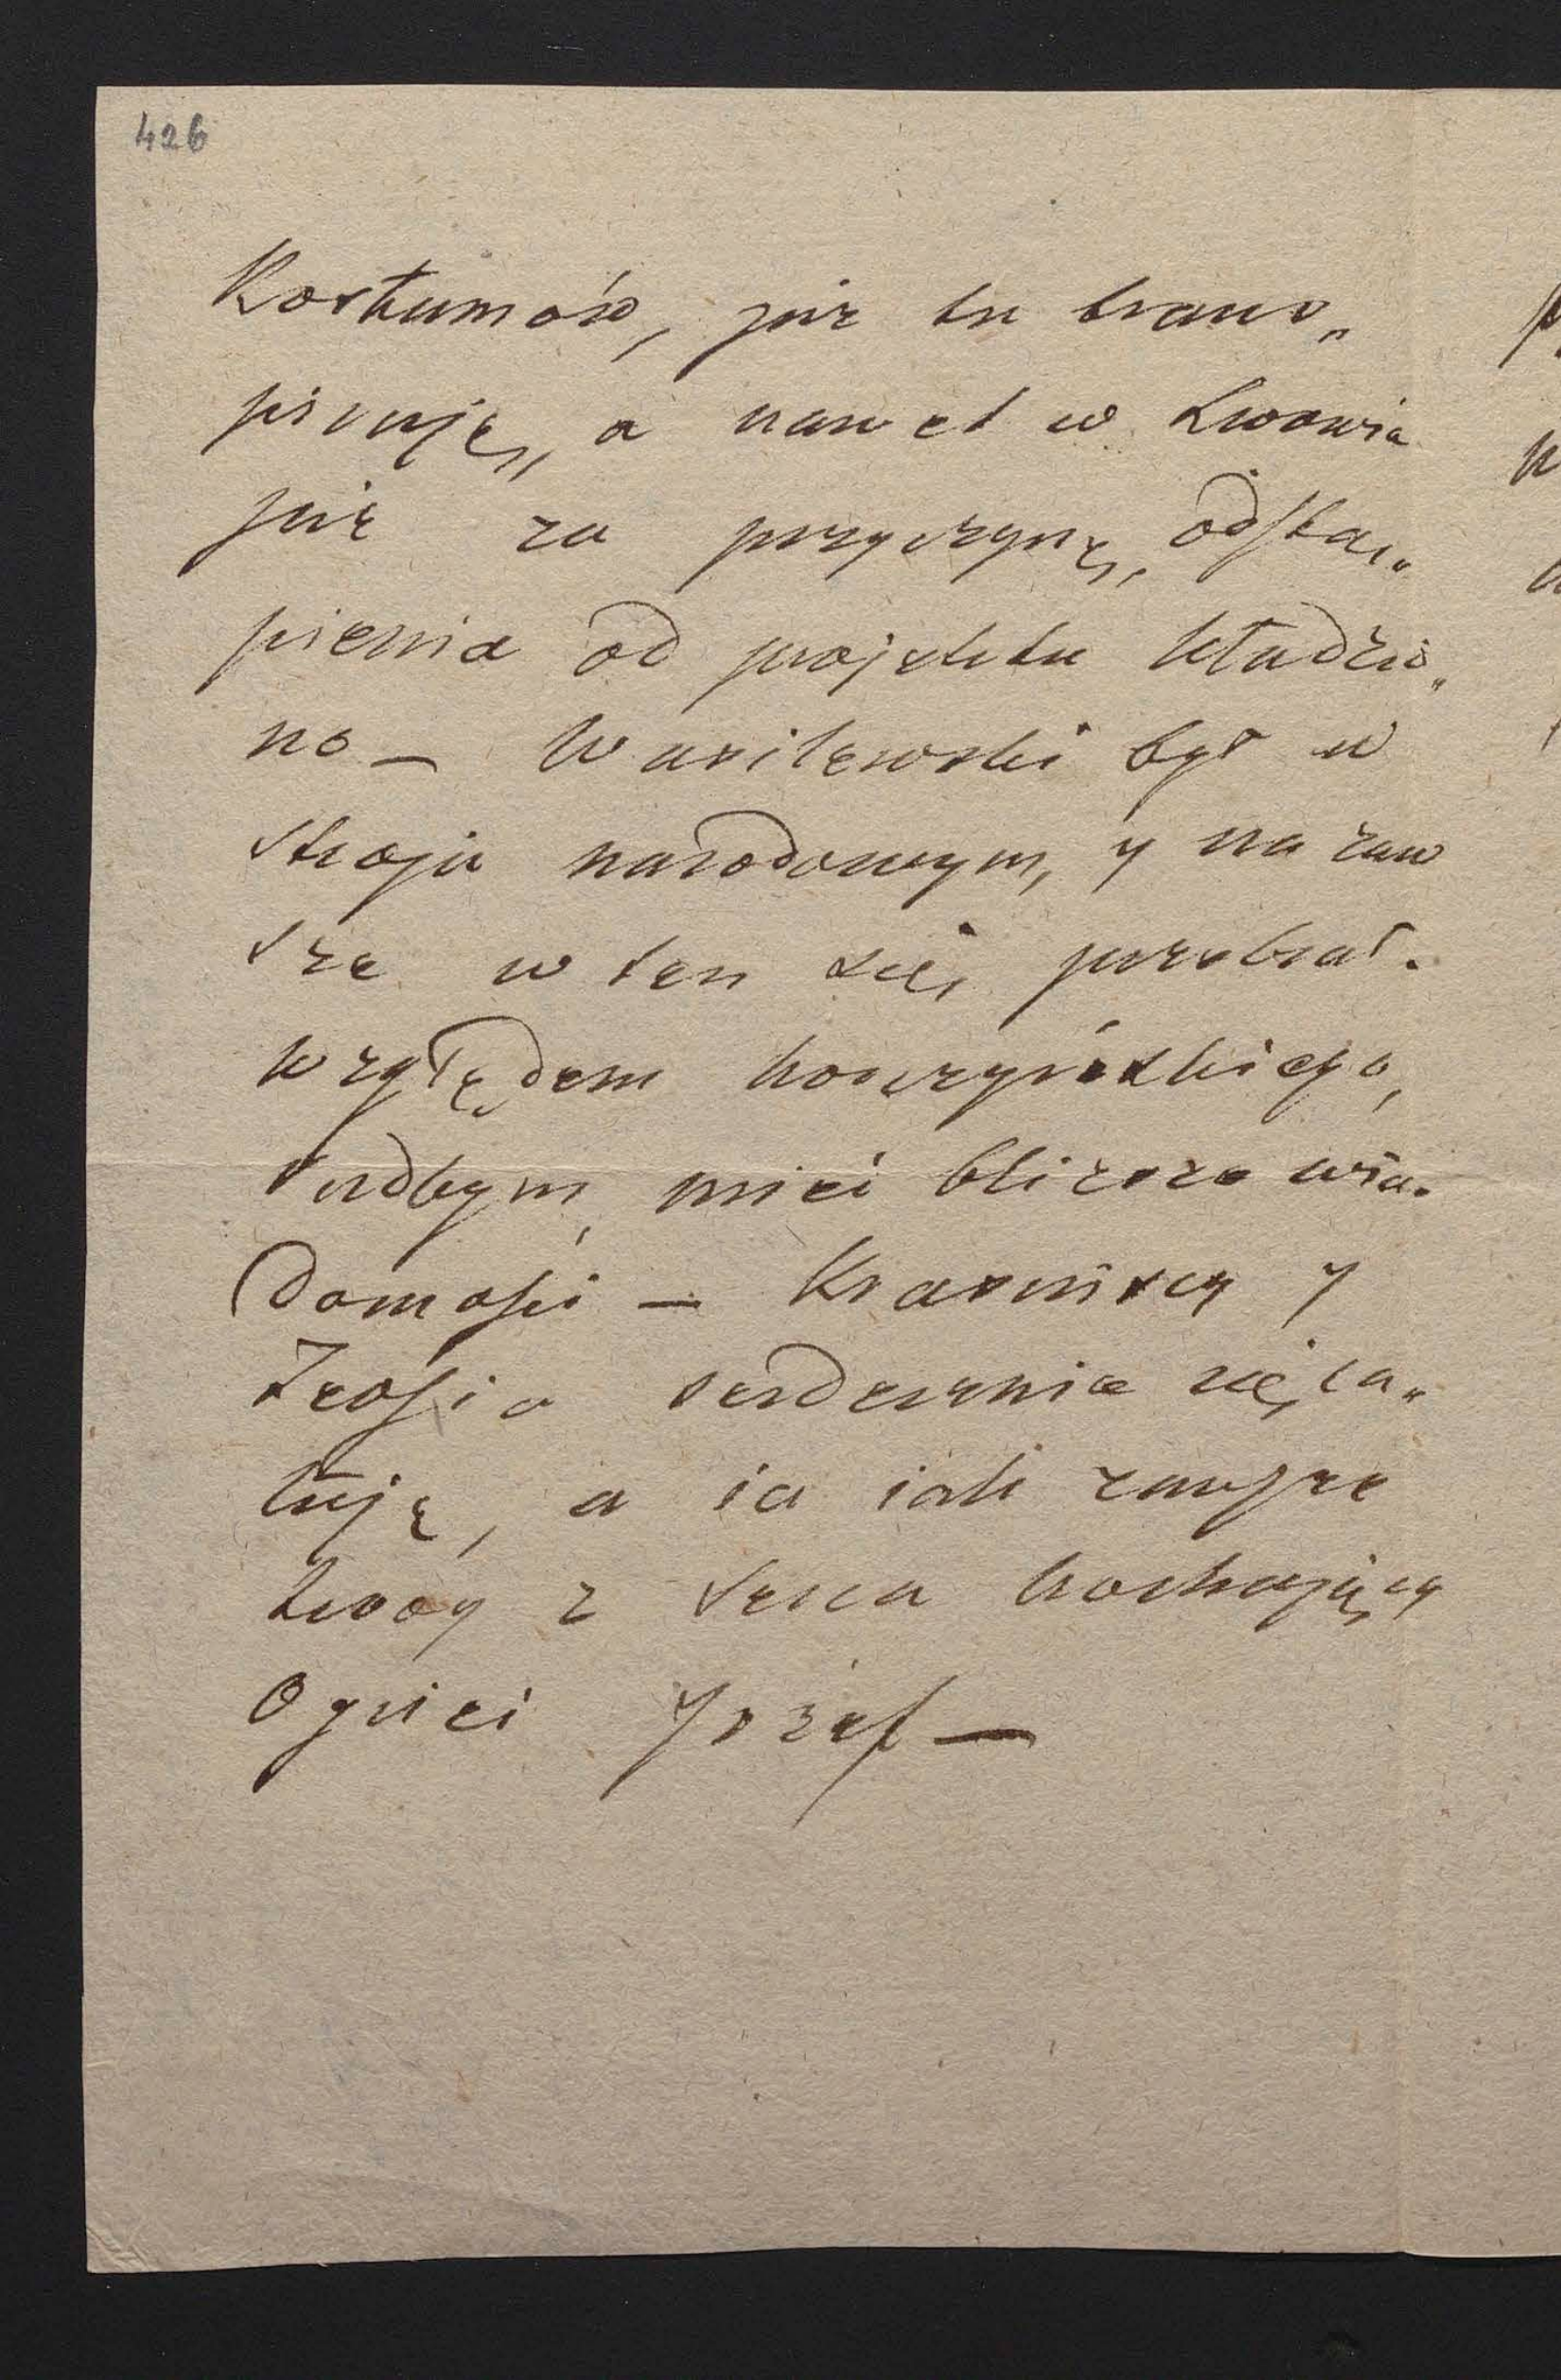 426
Kostumów, już tu trans„
pirują, a nawet w Lwowie
już za przyczynę odstą„
pienia od projektu kładzio„
no — Wasilewski był w
stroju narodowym, y na zaw
sze w ten się przebrał.
względem konczyńskiego,
radbym mieć bliższe wia„
domości — Krasińscy y
Zeosia serdecznie cię ca„
łują, a ia iak zawsze
twóy z serca kochający
Oyciec Józef —